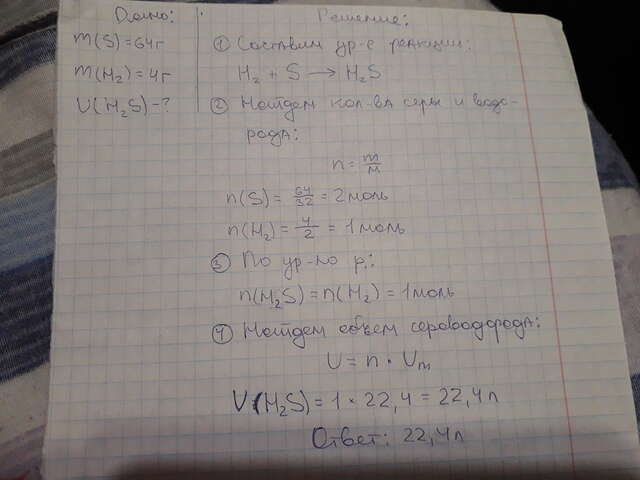 Дано:
m(S) = 64г
m(H₂) = 4г
V(H₂S) - ?
Решение:
① Составим ур-е реакции:
H₂ + S → H₂S
② Найдем кол-ва серы и водо-
рода:
n = m/M
n(S) = 64/32 = 2 моль
n(H₂) = 4/2 = 1 моль
③ По ур-ю р.:
n(H₂S) = n(H₂) = 1 моль
④ Найдем объем сероводорода:
V = n · Vm
V(H₂S) = 1 × 22,4 = 22,4 л
Ответ: 22,4 л